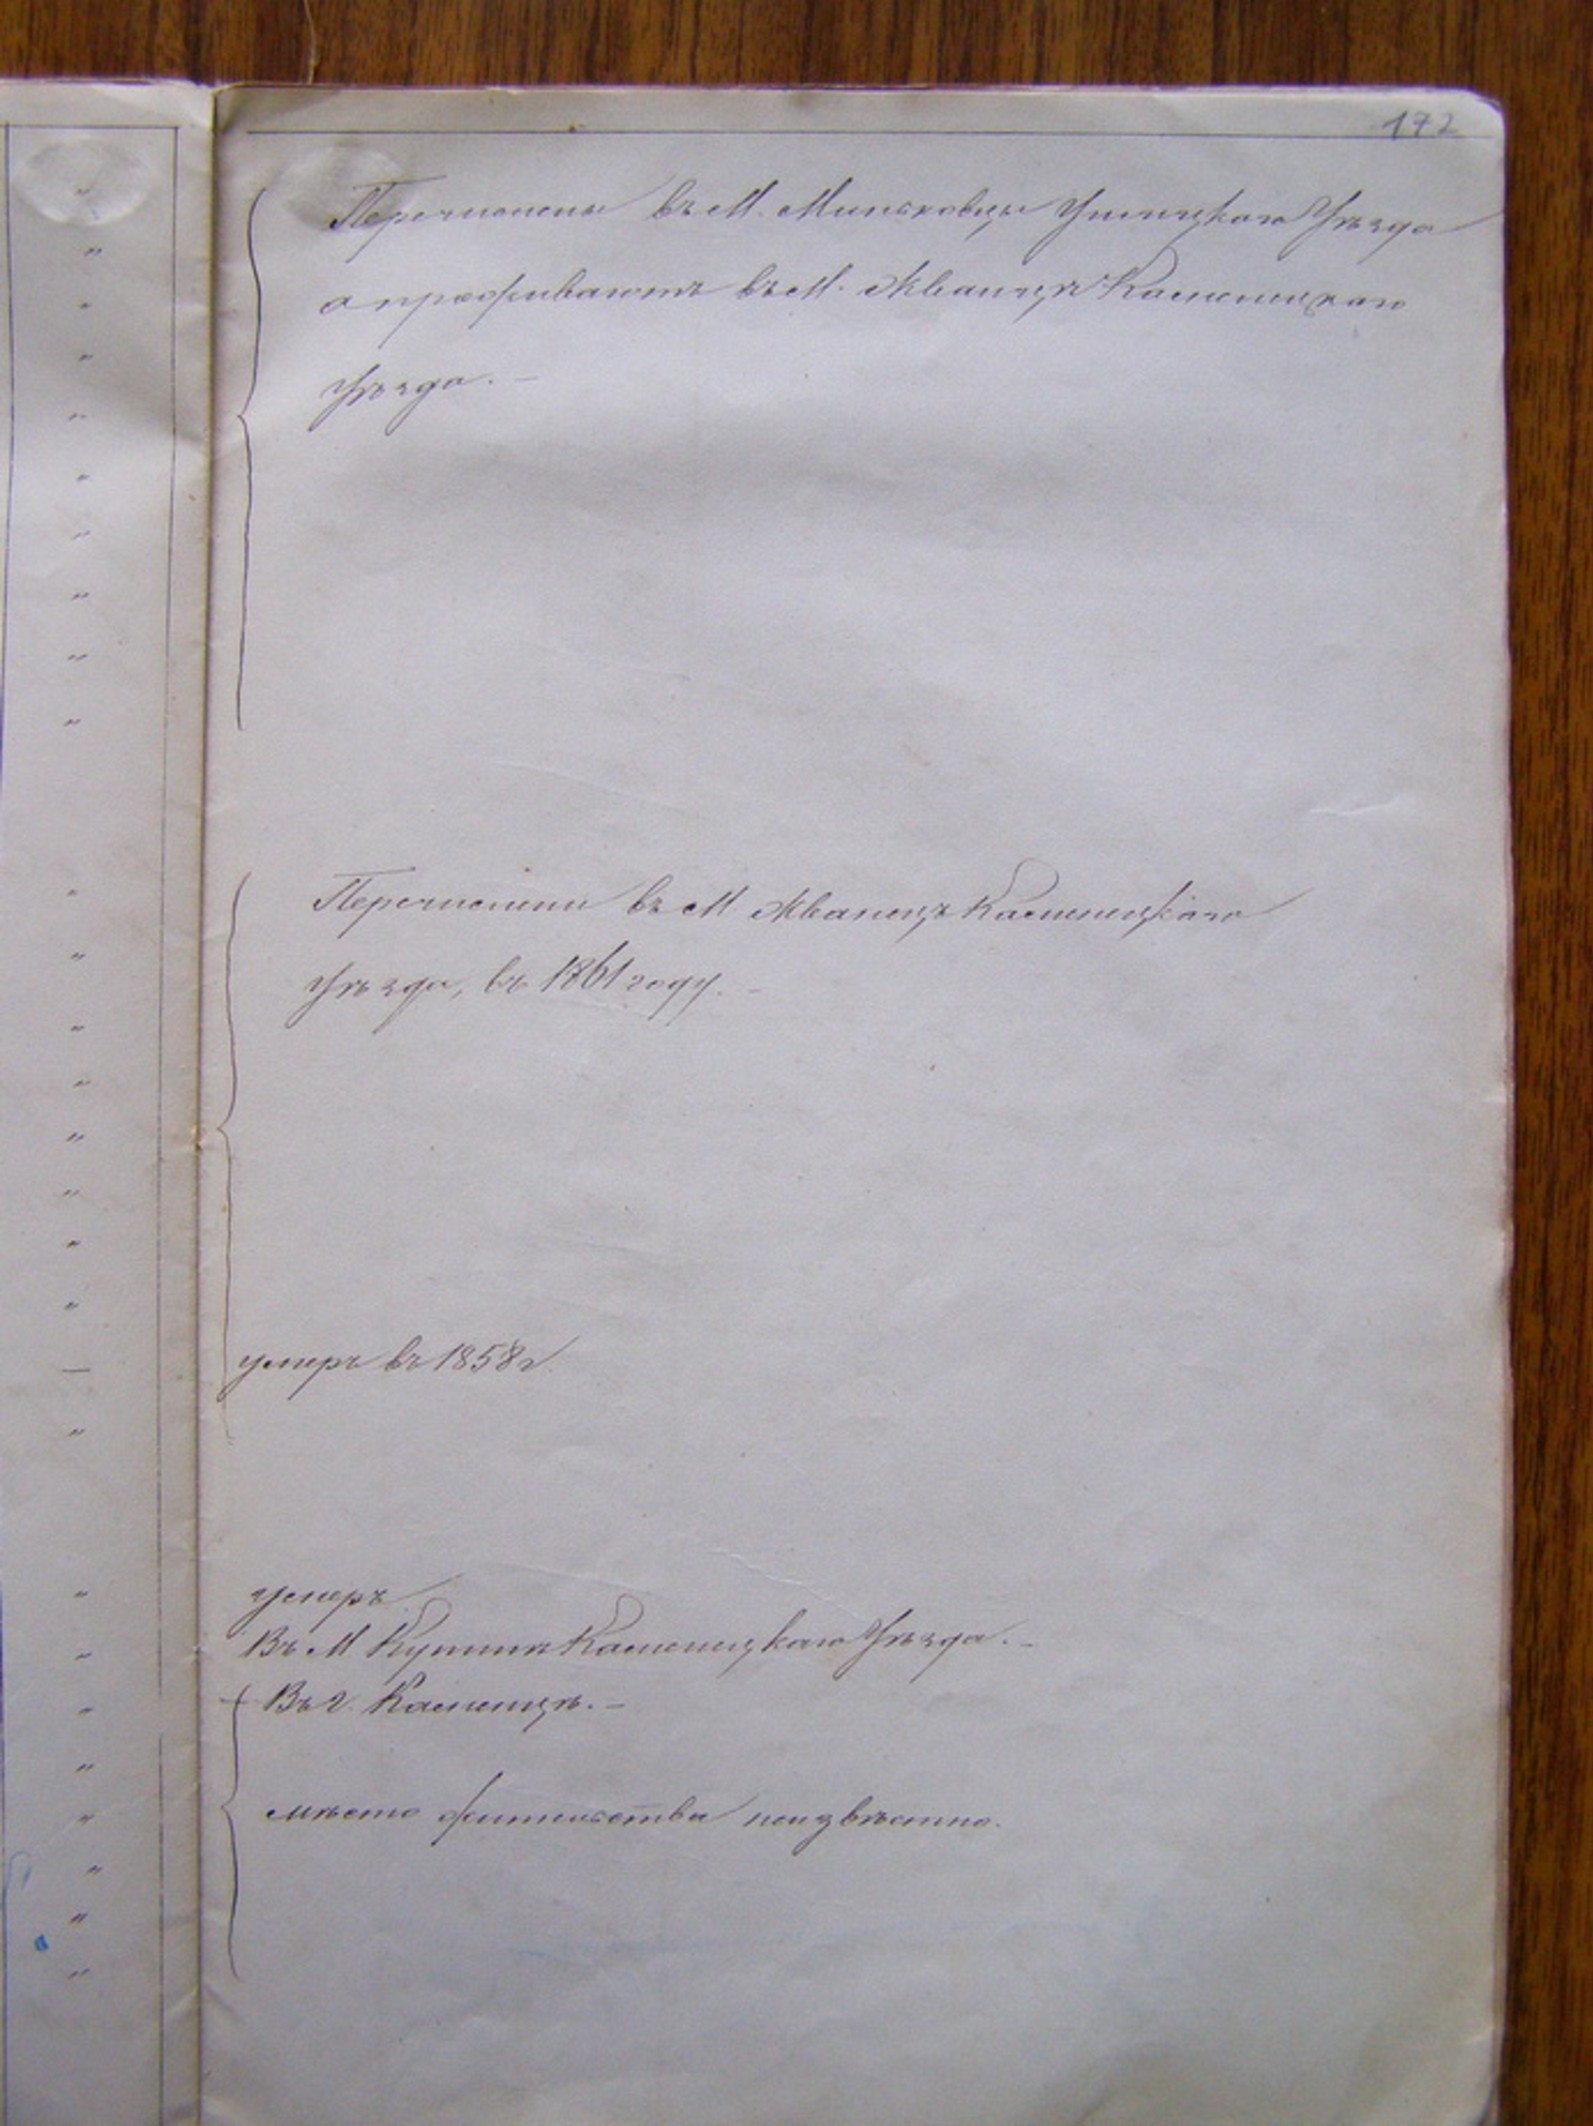 172
Перечислены въ М. Миньковцы Ушицкаго Уѣзда
а проживаютъ въ М. Жванцѣ Каменецкаго
Уѣзда. —
Перечислены въ М. Жванецъ Каменецкаго
Уѣзда, въ 1861 году. —
умеръ въ 1858 г.
умеръ
Въ М Купинѣ Каменецкаго Уѣзда. —
Въ г. Каменцѣ. —
мѣсто жительства неизвѣстно.